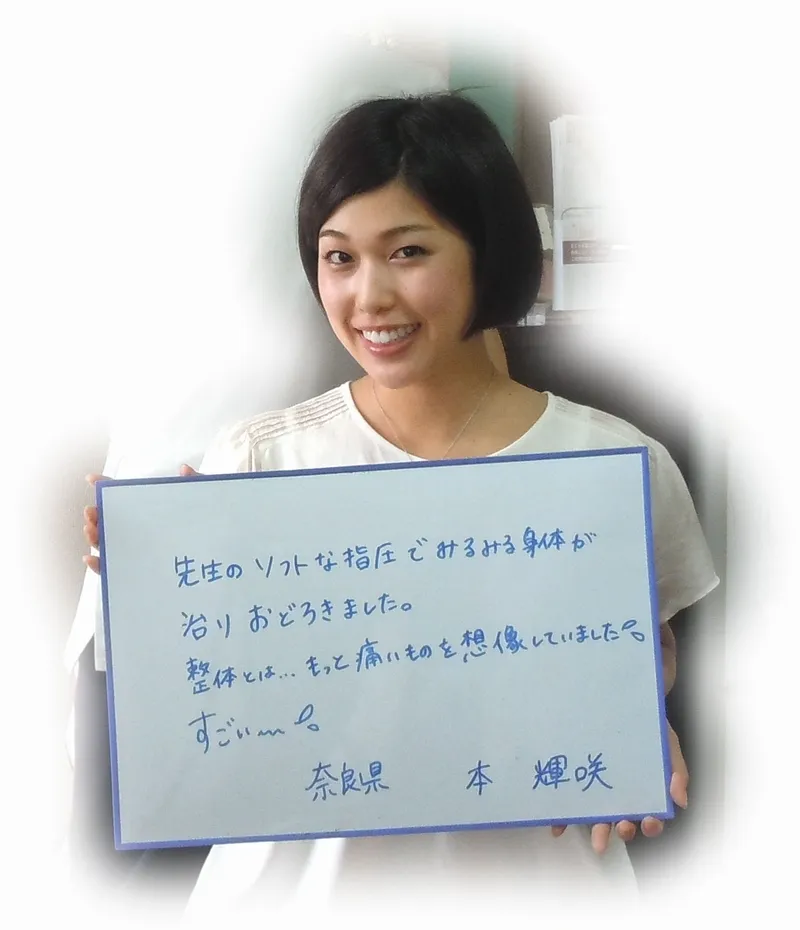 先生のソフトな指圧でみるみる身体が
治りおどろきました。
整体とは…もっと痛いものを想像していました。
すごい〜。
奈良県 本 輝咲